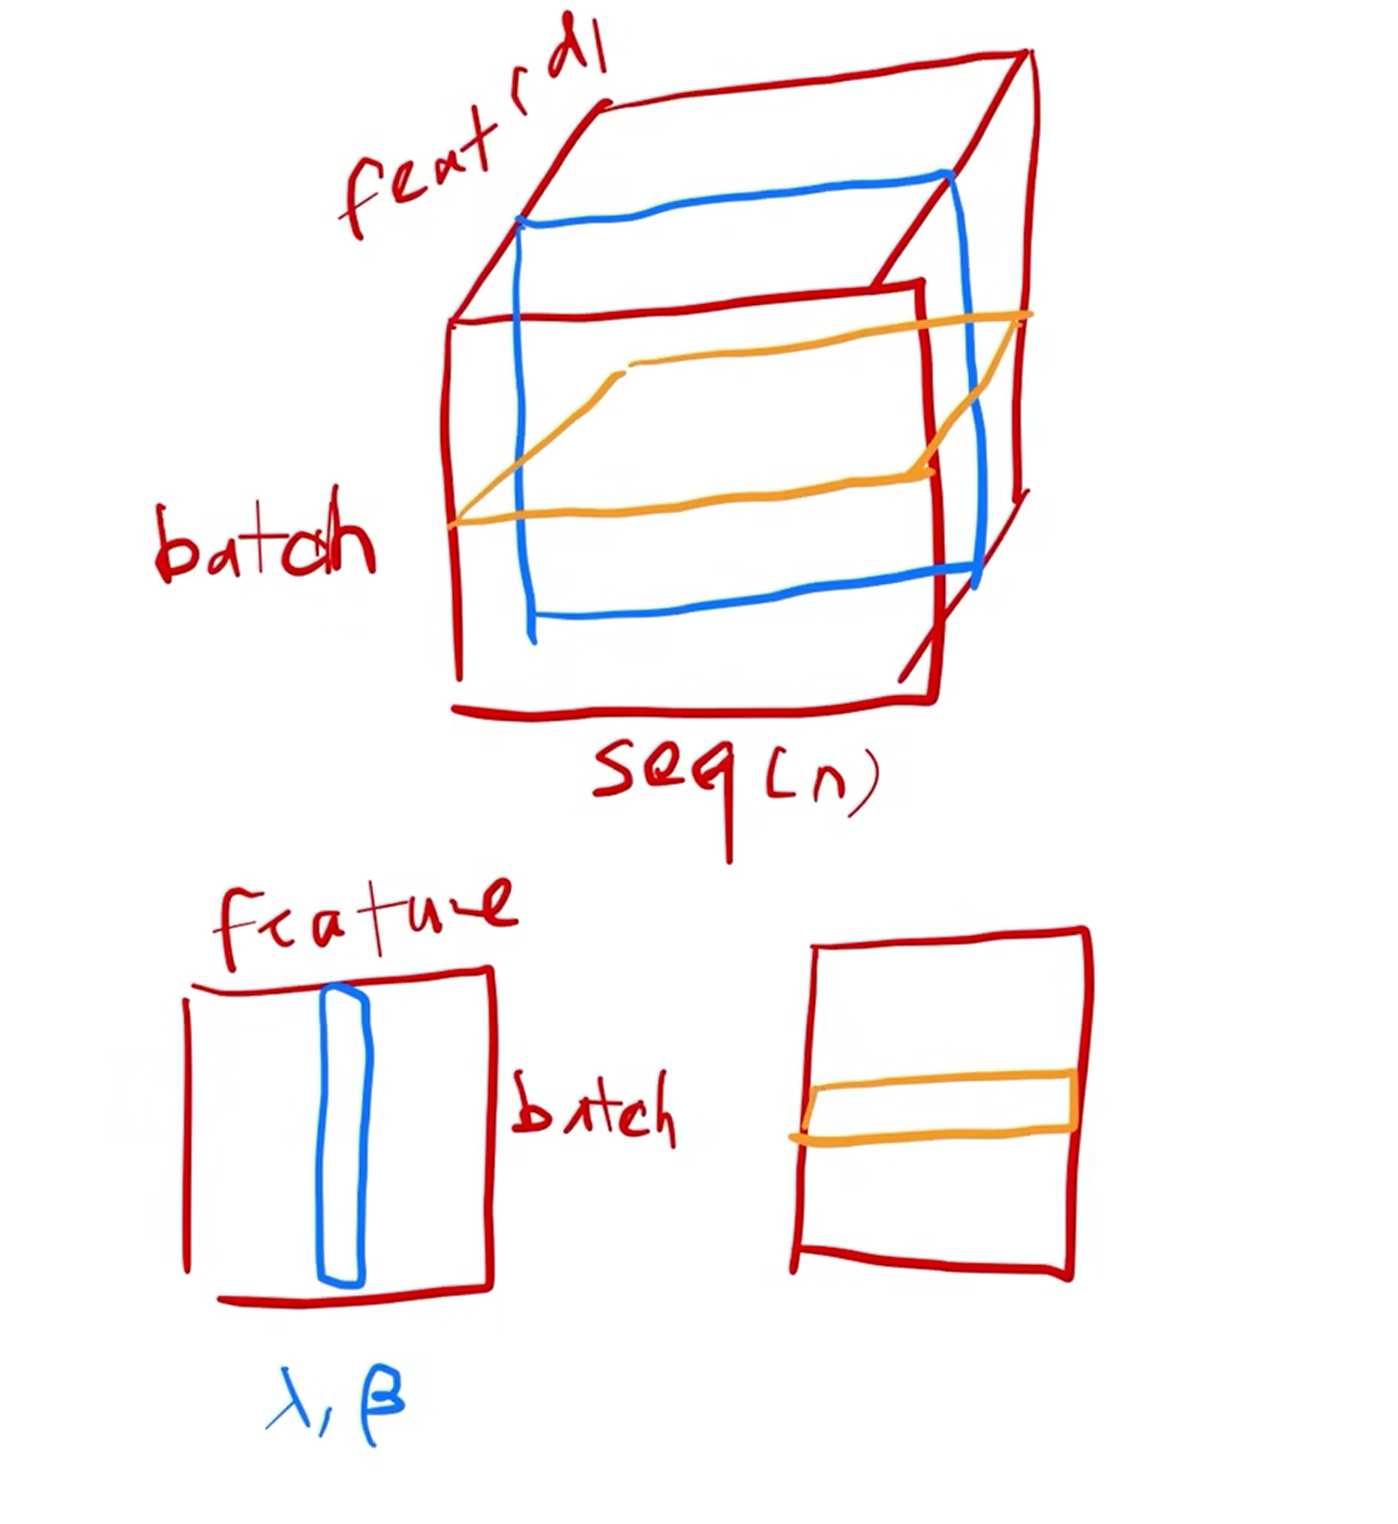 feat (d)
batch
seq (n)
feature
batch
λ, β